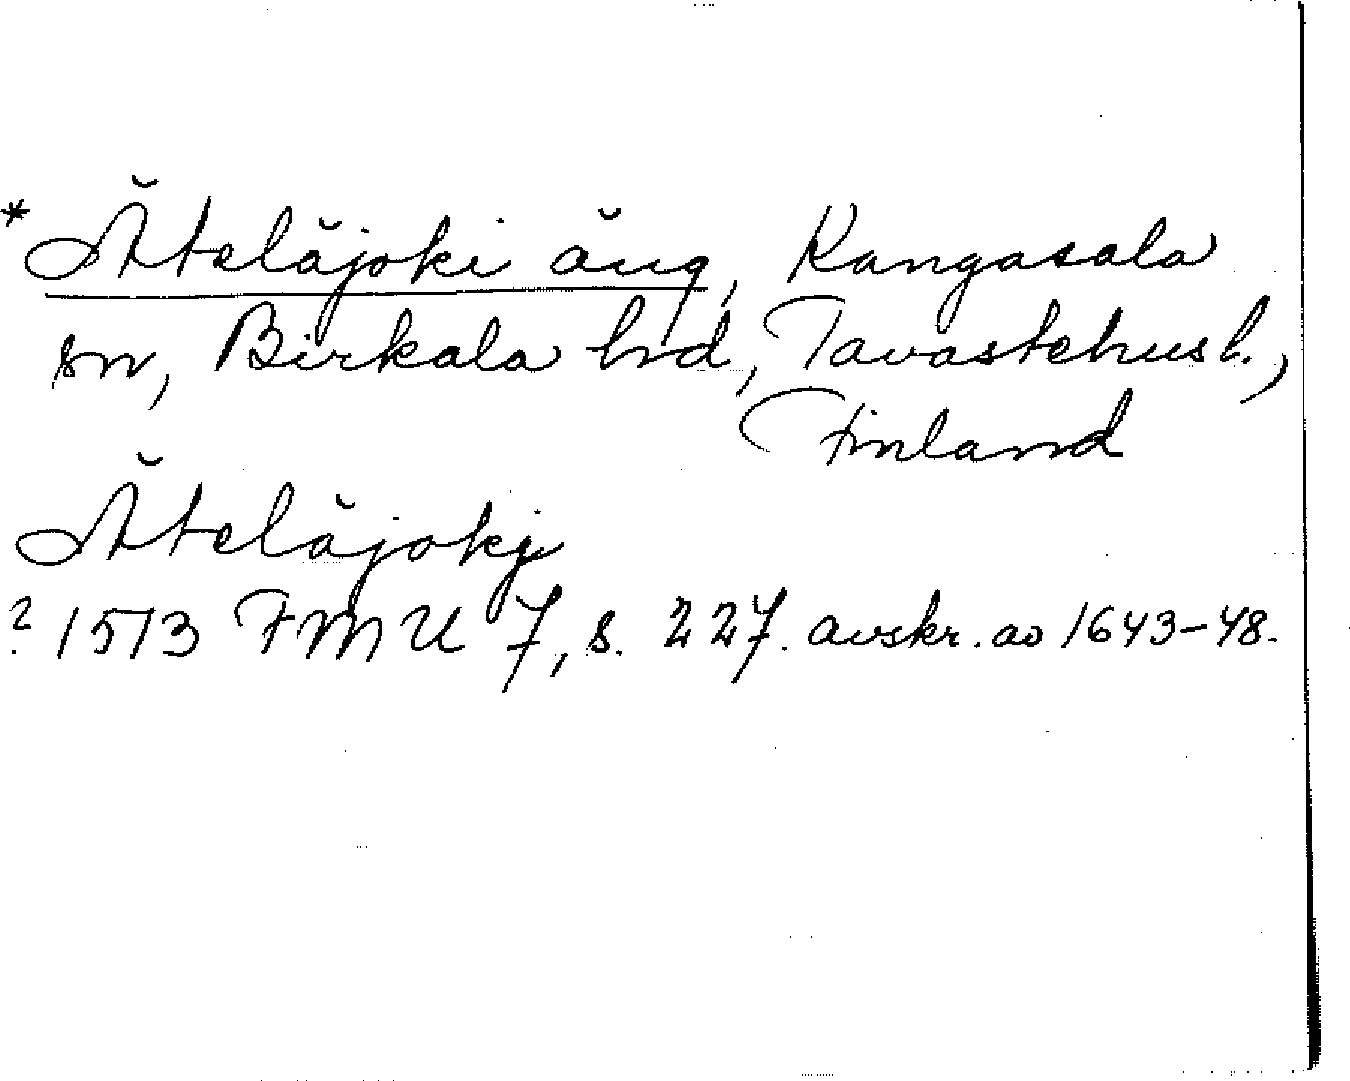 * Äteläjoki äng, Kangasala
sn, Birkala hd, Tavastehus l.,
Finland
Äteläjokj
? 1513 FMU 7, s. 227. avskr. av 1643-48.